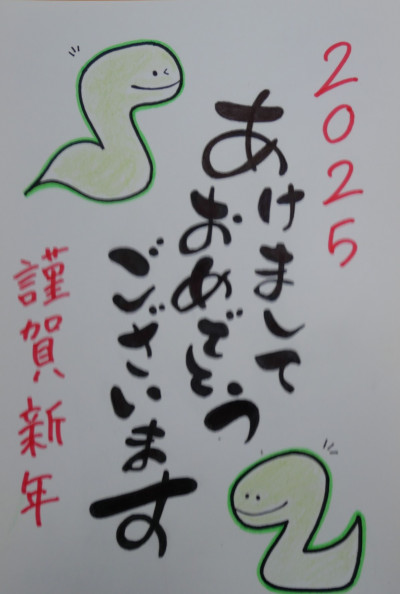 2025
あけまして
おめでとう
ございます
謹賀新年